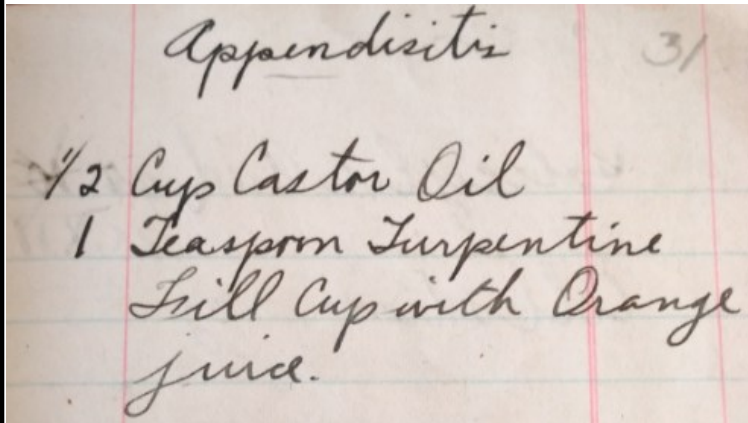 Appendisitis
31
1/2 Cup Castor Oil
1 Teaspoon Turpentine
Fill Cup with Orange
juice.